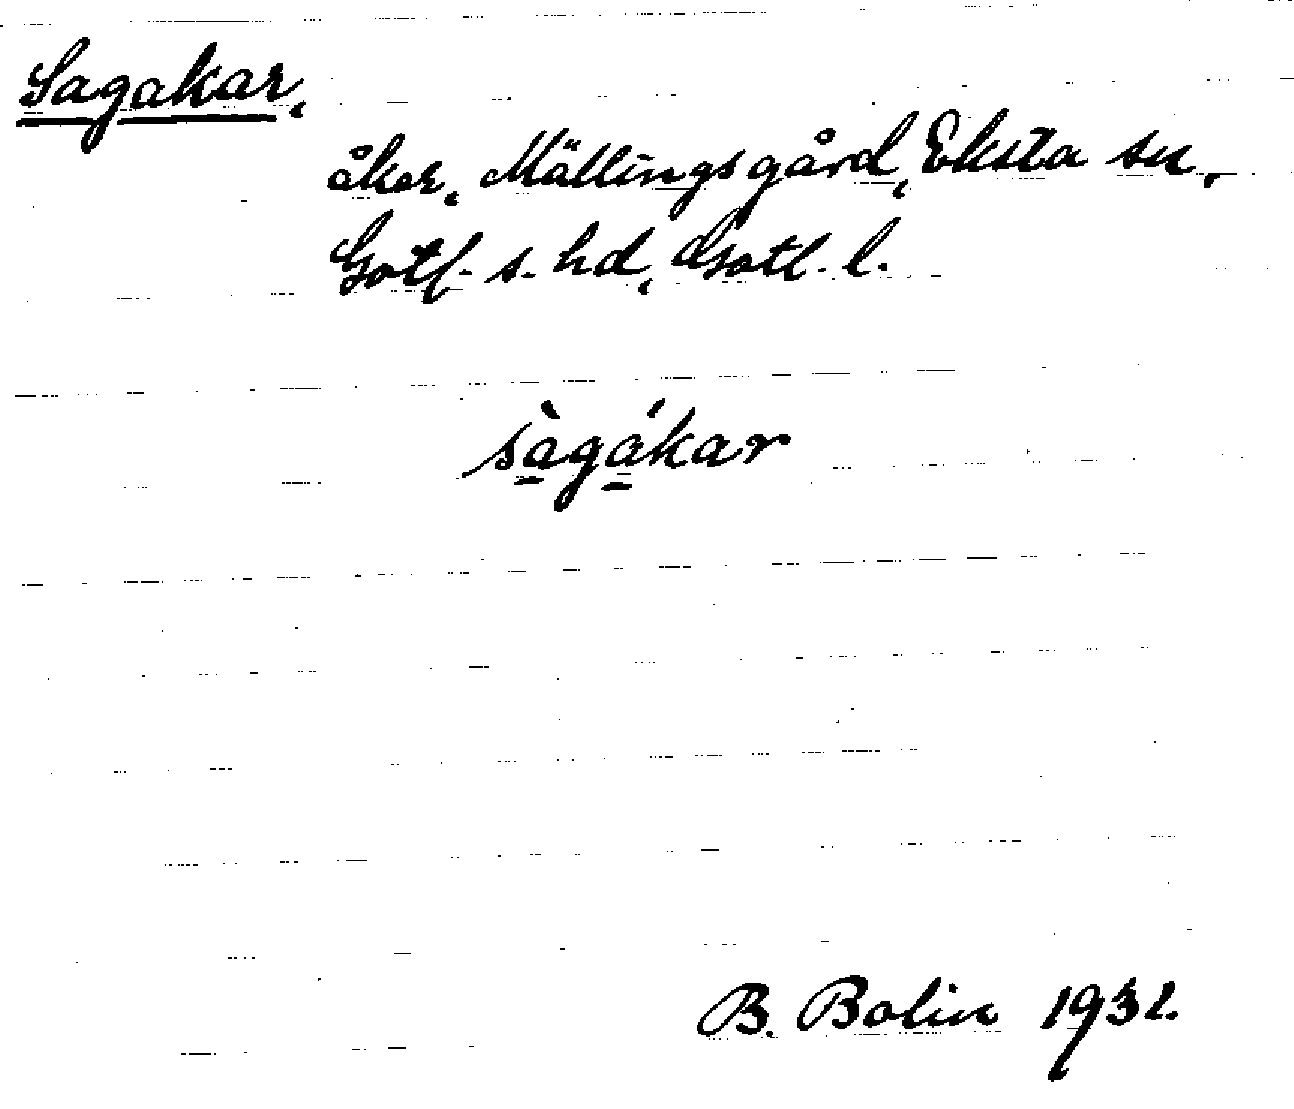 Sagakar,
åker, Mällingsgård, Eksta sn,
Gotl. s. hd, Gotl. l.
sàgákar
B. Bolin 1932.